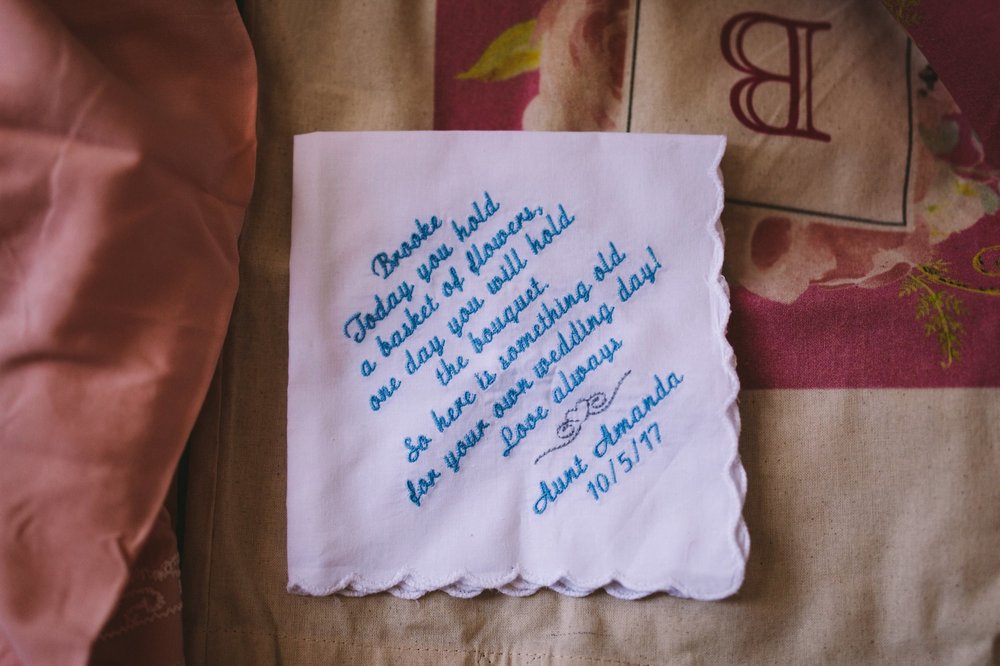 B
Brooke
Today you hold
a basket of flowers,
one day you will hold
the bouquet.
So here is something old
for your own wedding day!
Love always
Aunt Amanda
10/5/17